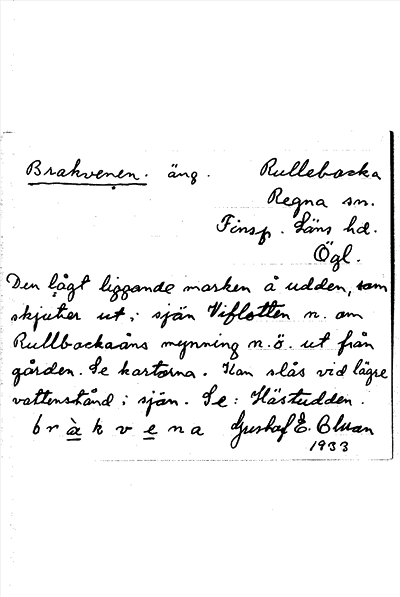 Brakvenen. äng. Rullebacka
Regna sn.
Finsp. Läns hd.
Ögl.
Den lågt liggande marken å udden, som
skjuter ut i sjön Viflotten n. om
Rullbackaåns mynning n.ö. ut från
gården. Se kartorna. Kan slås vid lägre
vattenstånd i sjön. Se: Hästudden.
bràkvena Gustaf E.
1933